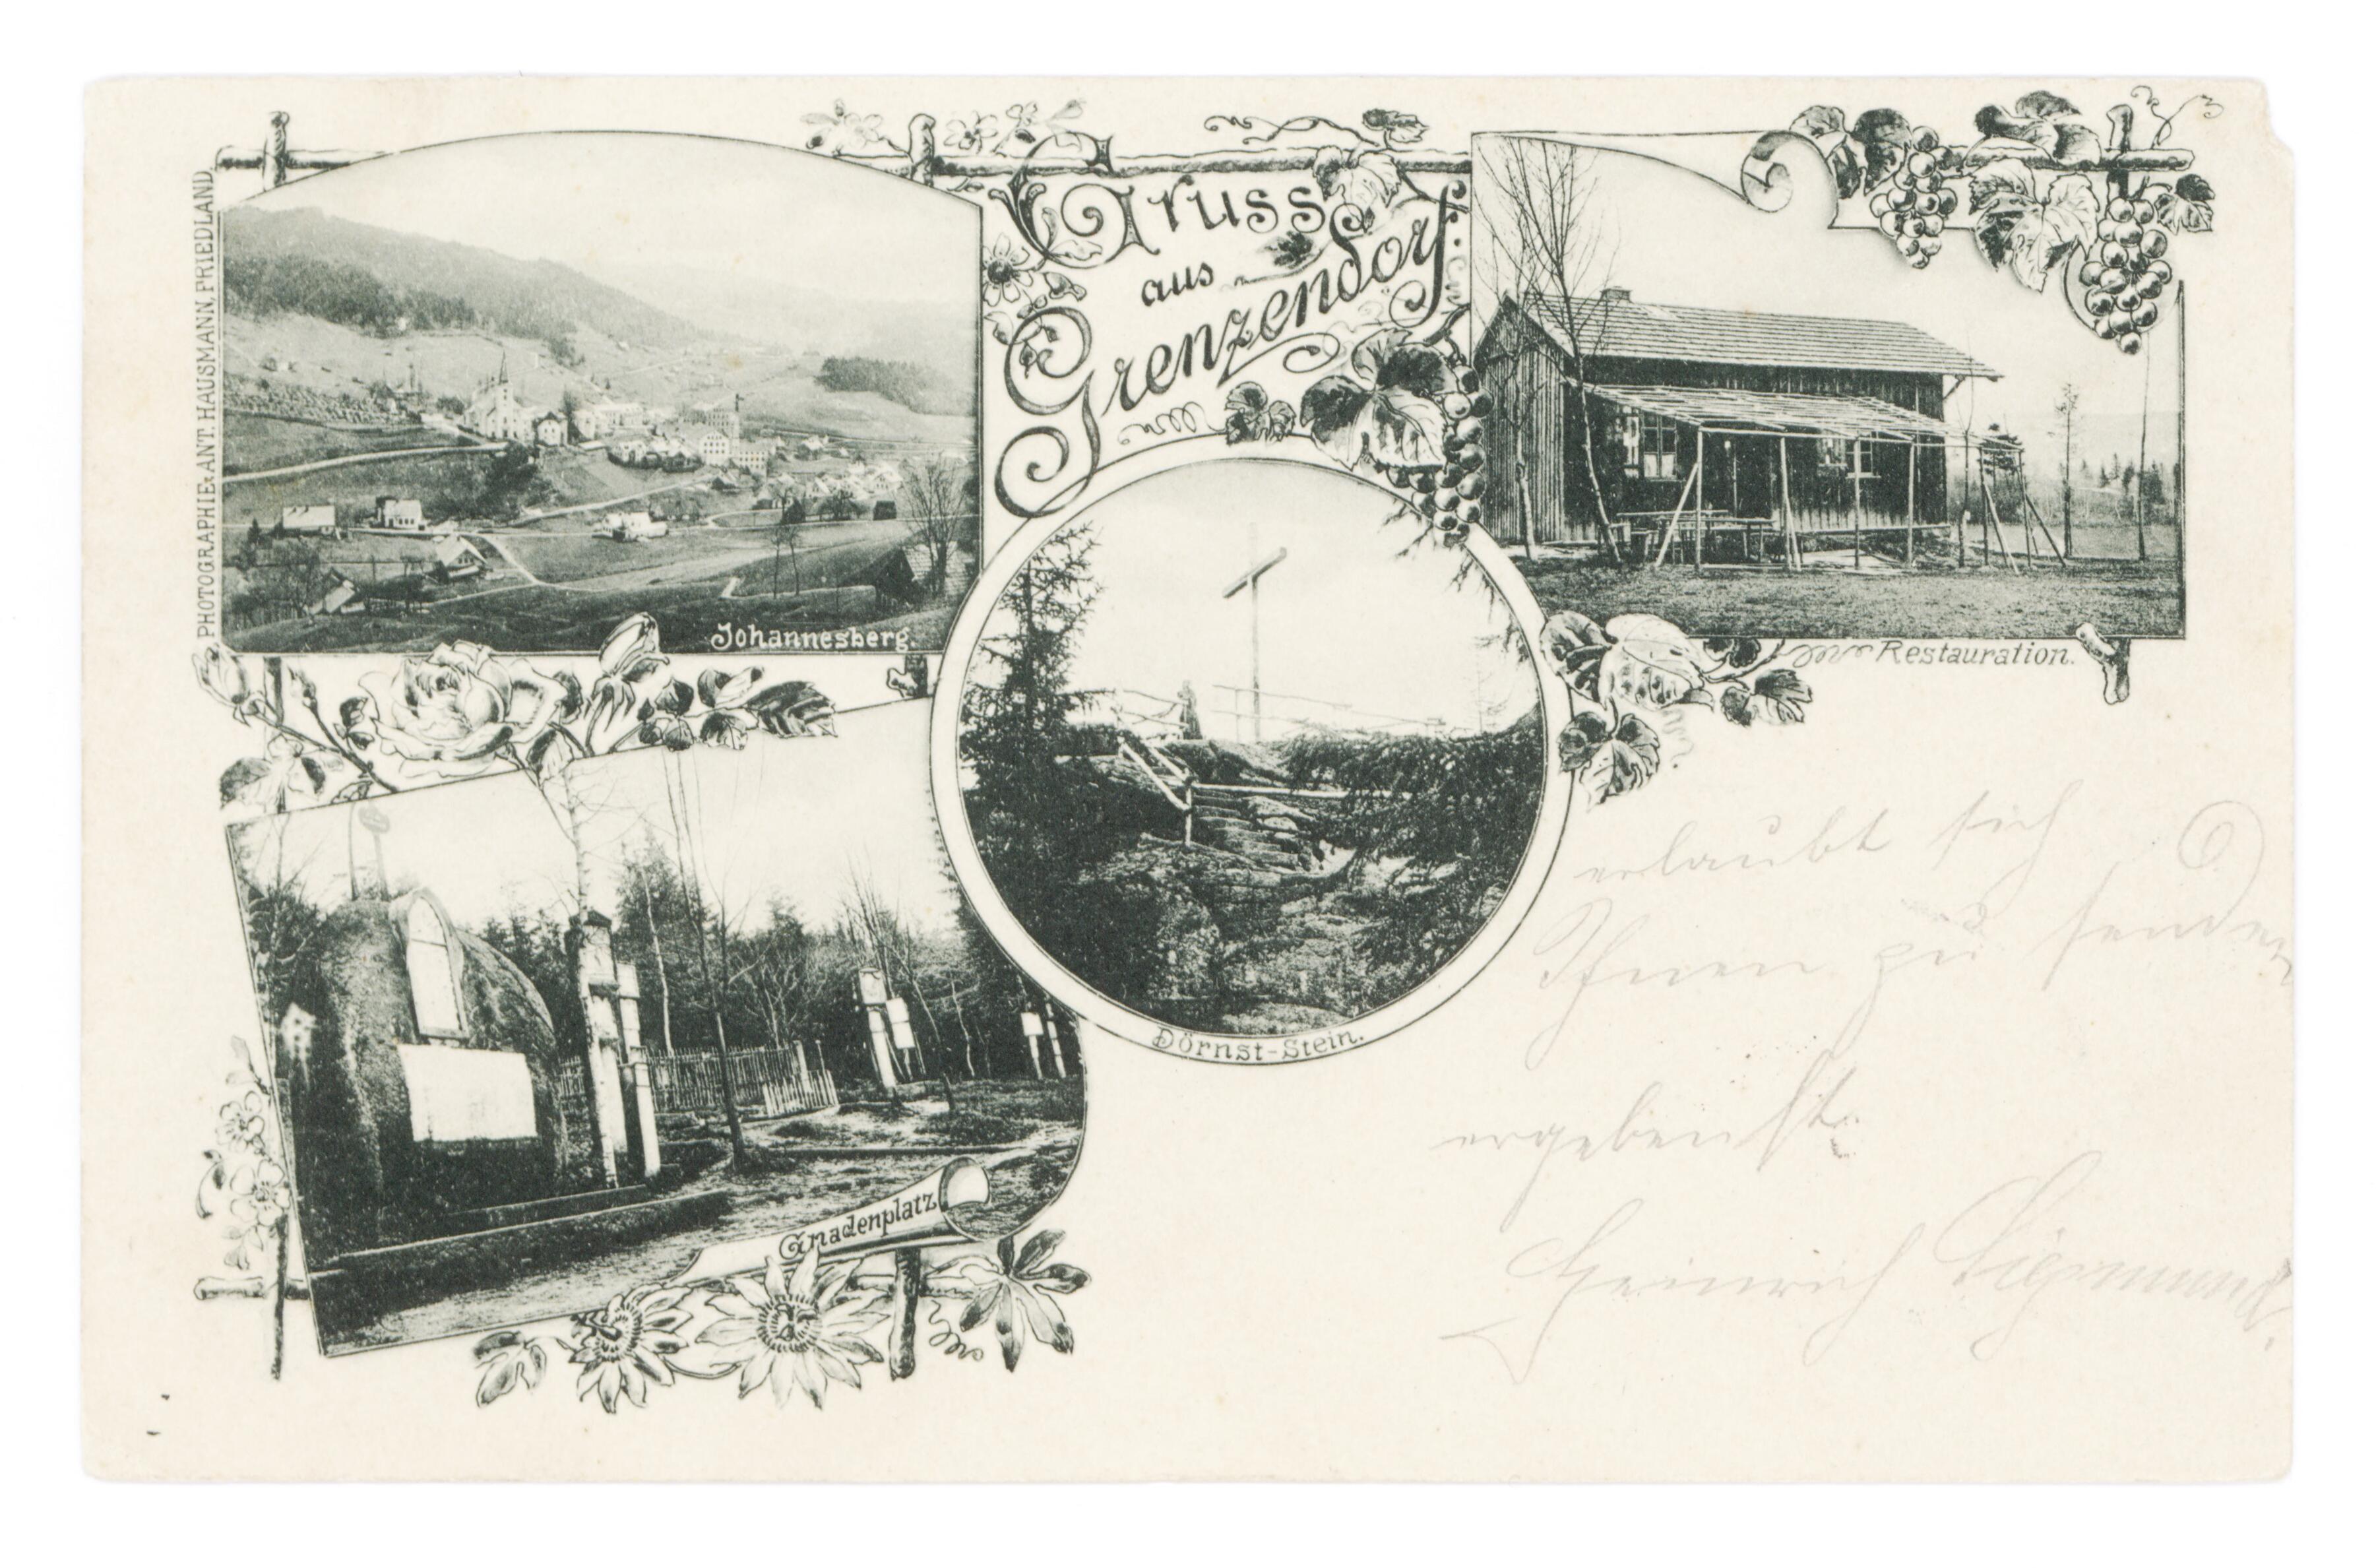 PHOTOGRAPHIE v. ANT. HAUSMANN, FRIEDLAND
Gruss
aus
Grenzendorf.
Johannesberg.
Restauration.
Dörnst-Stein.
Gnadenplatz
erlaubt sich
Ihnen zu senden
ergebenst
Heinrich Siegmund.